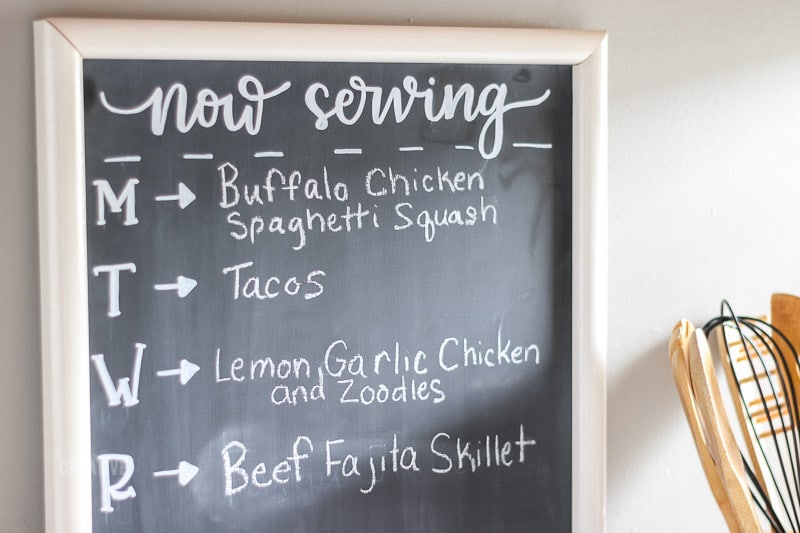 now serving
M → Buffalo Chicken
Spaghetti Squash
T → Tacos
W → Lemon, Garlic Chicken
and Zoodles
R → Beef Fajita Skillet